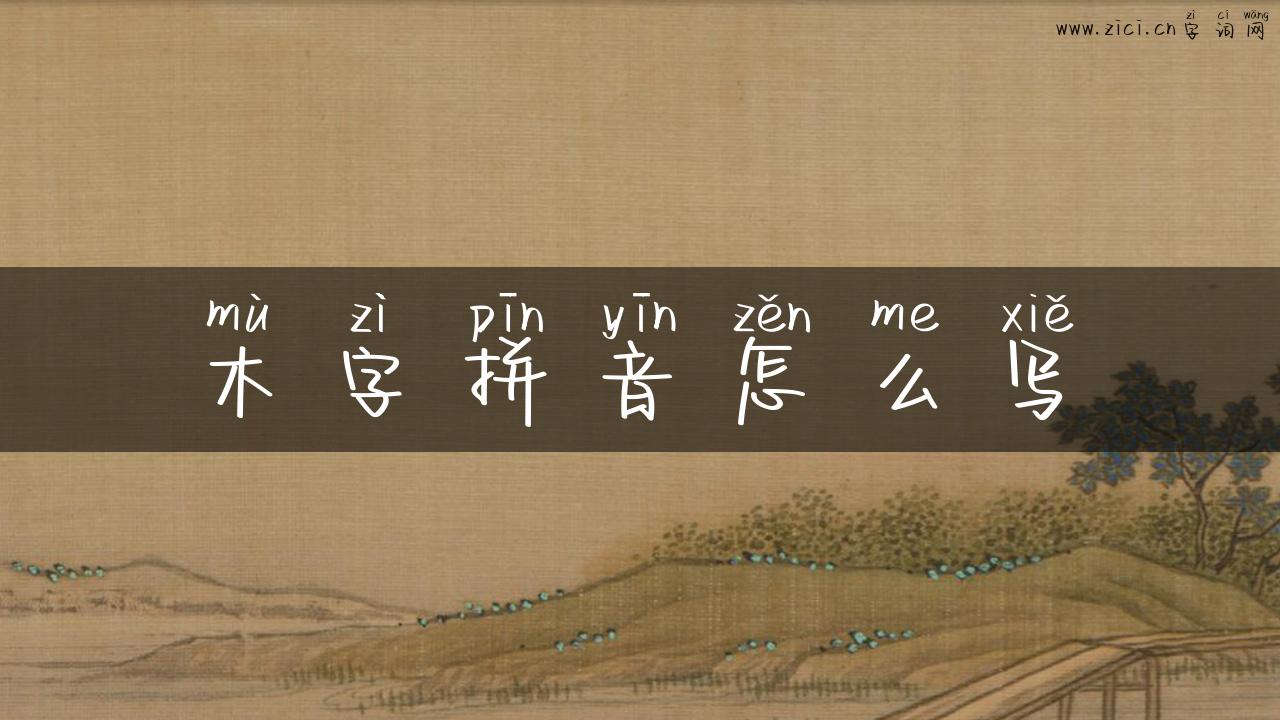 zì cí wǎng
www.zici.cn字词网
mù zì pīn yīn zěn me xiě
木字拼音怎么写